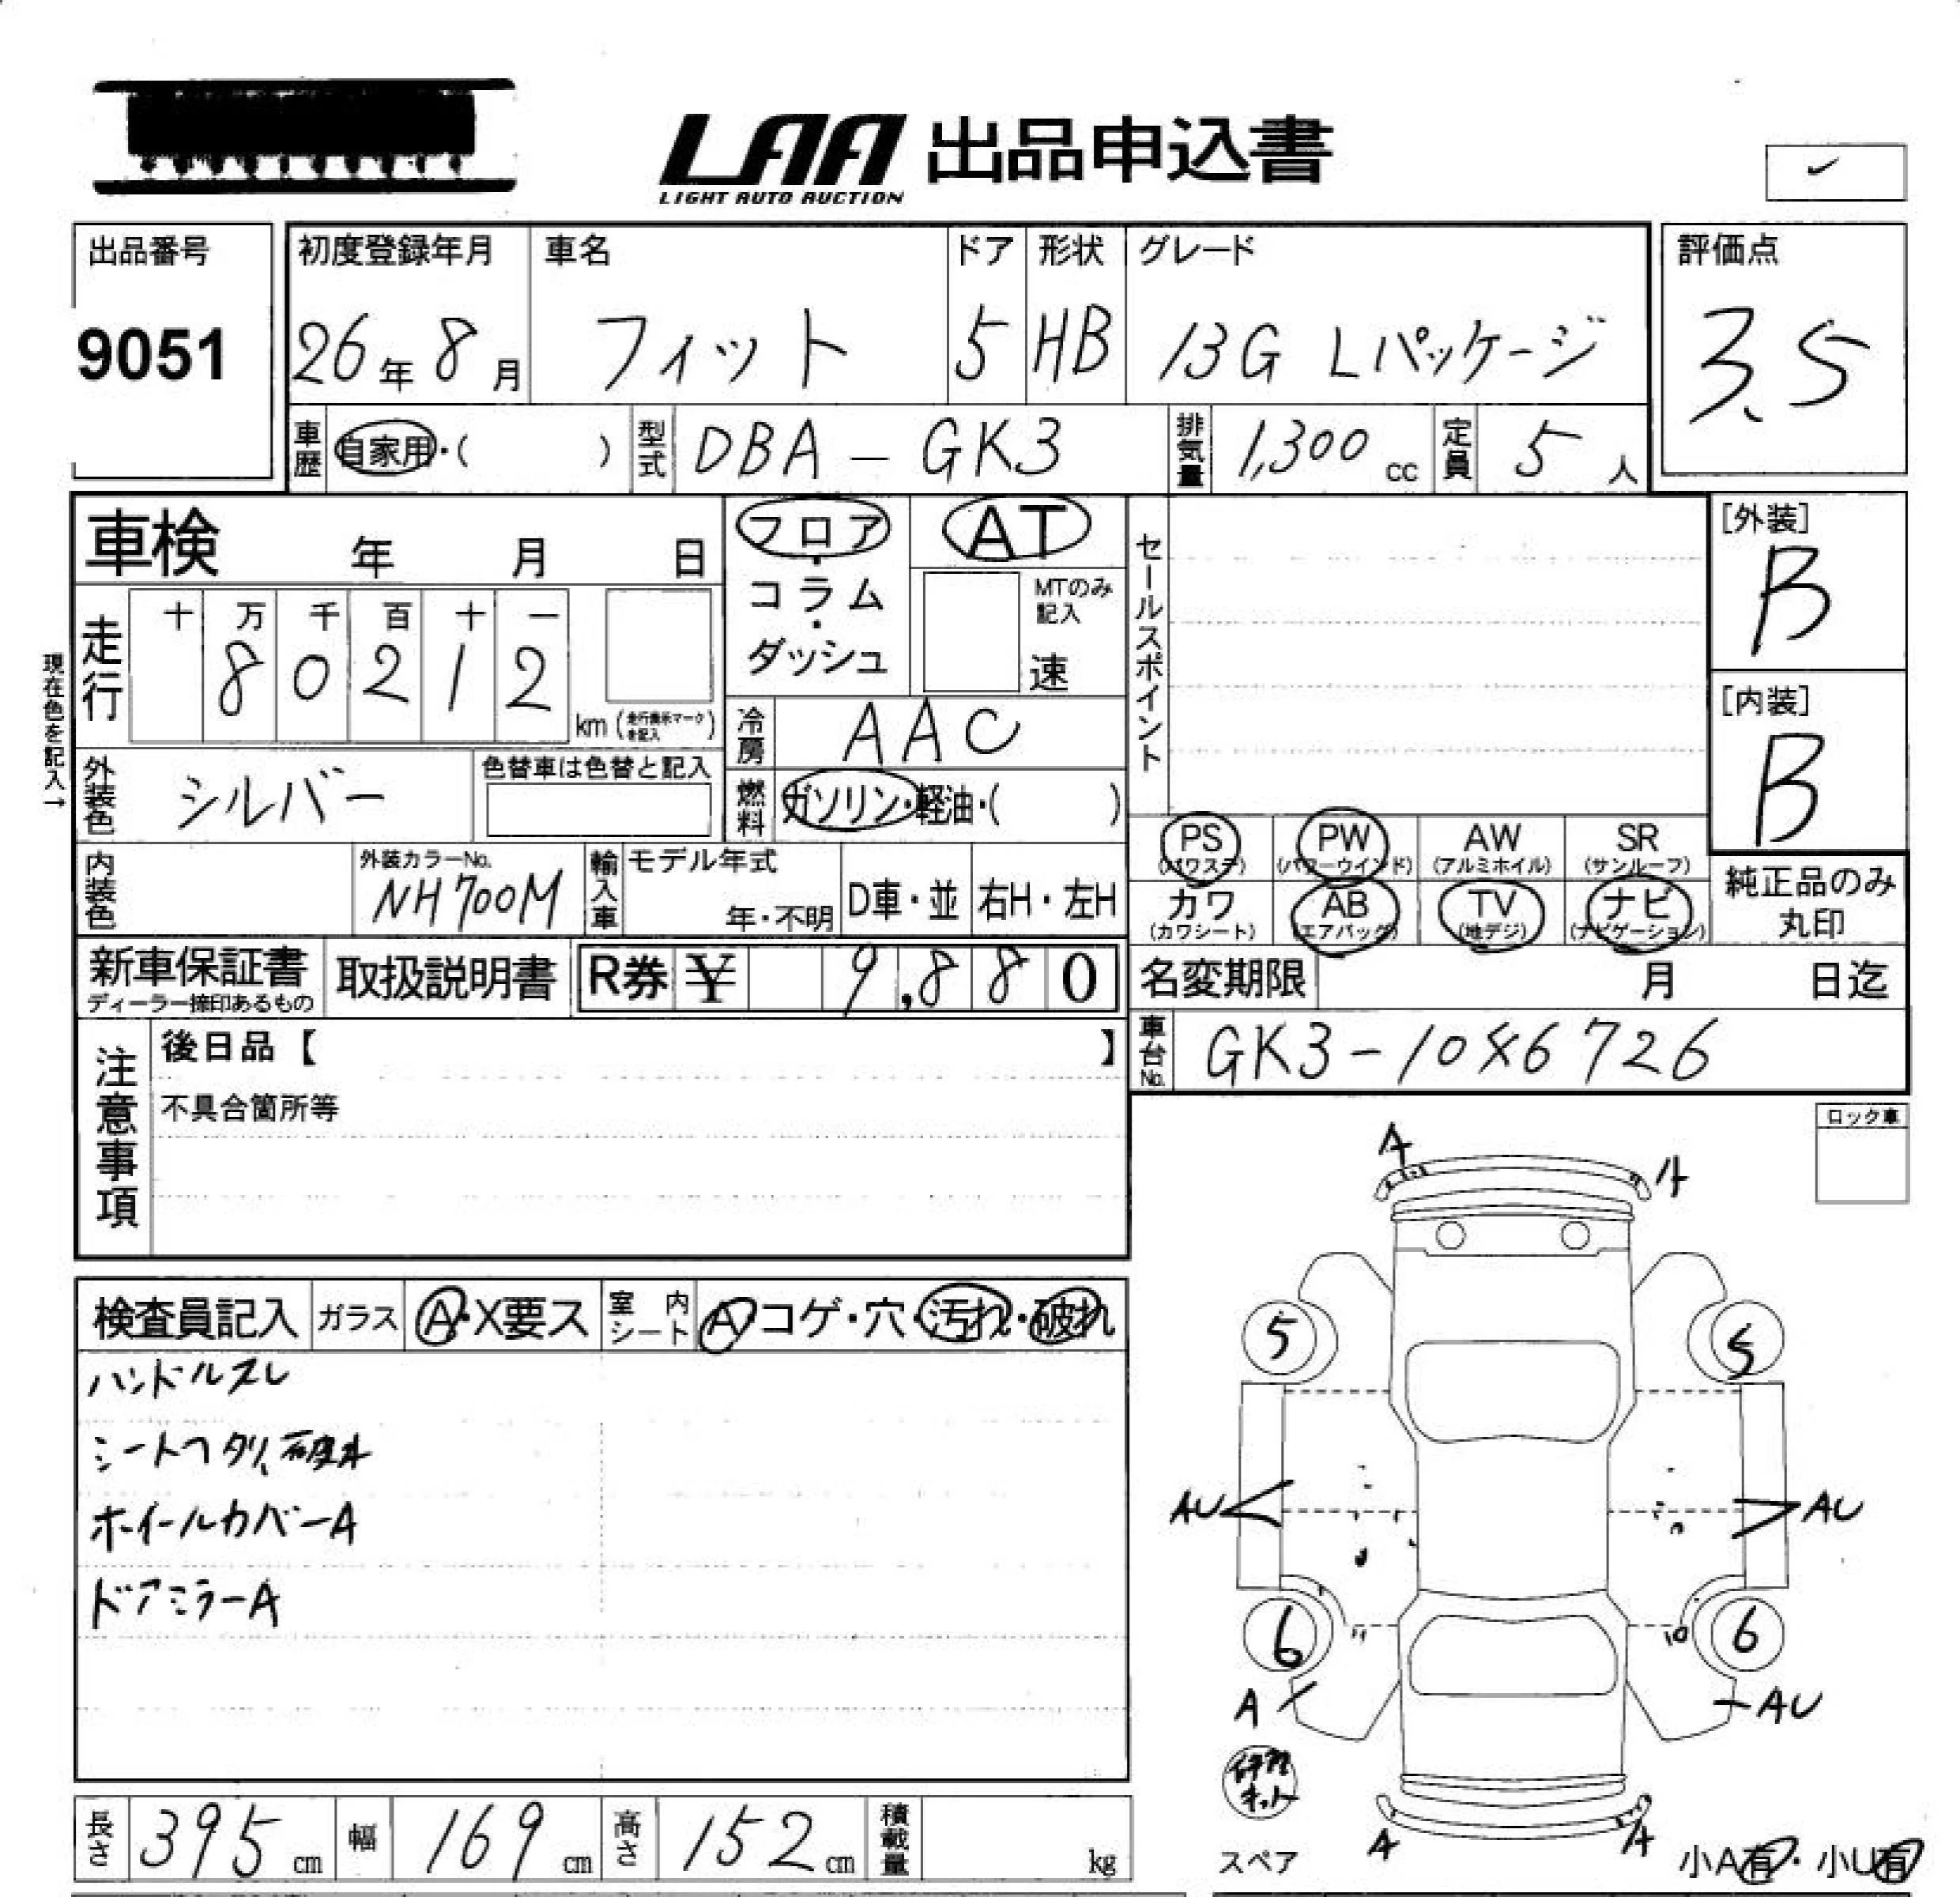 LAA 出品申込書
LIGHT AUTO AUCTION
出品番号
9051
初度登録年月
26年 8月
車名
フィット
ドア
5
形状
HB
グレード
13G Lパッケージ
評価点
3.5
車歴 自家用・( )
型式 DBA - GK3
排気量 1,300 cc
定員 5 人
車検 年 月 日
フロア・コラム・ダッシュ
AT
MTのみ記入
速
セールスポイント
[外装]
B
[内装]
B
現在色を記入→
走行
十 万 千 百 十 一
8 0 2 1 2
km (走行表示マークを記入)
冷房 AAC
外装色 シルバー
色替車は色替と記入
燃料 ガソリン・軽油・( )
内装色
外装カラーNo.
NH700M
輸入車 モデル年式
年・不明
D車・並
右H・左H
PS (パワステ)
PW (パワーウインド)
AW (アルミホイル)
SR (サンルーフ)
カワ (カワシート)
AB (エアバッグ)
TV (地デジ)
ナビ (ナビゲーション)
純正品のみ丸印
新車保証書
ディーラー捺印あるもの
取扱説明書
R券 ¥ 9,880
名変期限 月 日迄
車台No. GK3-1046726
注意事項
後日品【 】
不具合箇所等
ロック車
検査員記入
ガラス A・X要ス
室内シート A・コゲ・穴・汚れ・破れ
ハンドルスレ
シートヘタリ、破れ
ホイールカバーA
ドアミラーA
A
A
5
5
AU
AU
6
6
A
AU
修理キット
スペア
A
A
小A有・小U有
長さ 395 cm
幅 169 cm
高さ 152 cm
積載量 kg